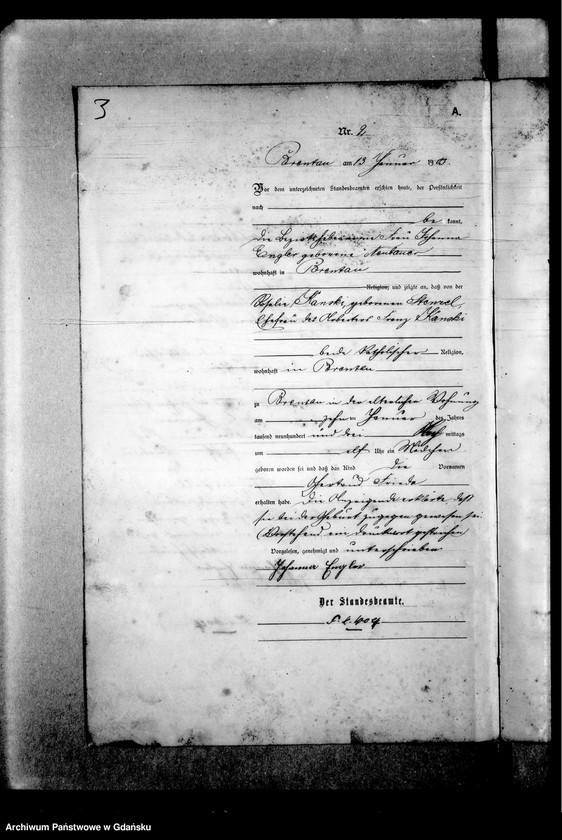 3
A.
Nr. 2.
Brentau am 13 Januar 1903.
Vor dem unterzeichneten Standesbeamten erschien heute, der Persönlichkeit
nach
be kannt,
die Bezirkshebamme Frau Johanna
Engler geborene Neubauer
wohnhaft in Brentau
Religion, und zeigte an, daß von der
Rosalie Kanski, geborenen Stenzel,
Ehefrau des Arbeiters Franz Kanski
beide katholischer Religion,
wohnhaft in Brentau
zu Brentau in der elterlichen Wohnung
am zehnten Januar des Jahres
tausend neunhundert und drei mittags
um elf Uhr ein Mädchen
geboren worden sei und daß das Kind die Vornamen
Gertrud Frieda
erhalten habe. Die Anzeigende erklärte daß
sie bei der Geburt zugegen gewesen sei.
Vorstehend ein Druckwort gestrichen
Vorgelesen, genehmigt und unterschrieben
Johanna Engler
Der Standesbeamte.
Archiwum Państwowe w Gdańsku